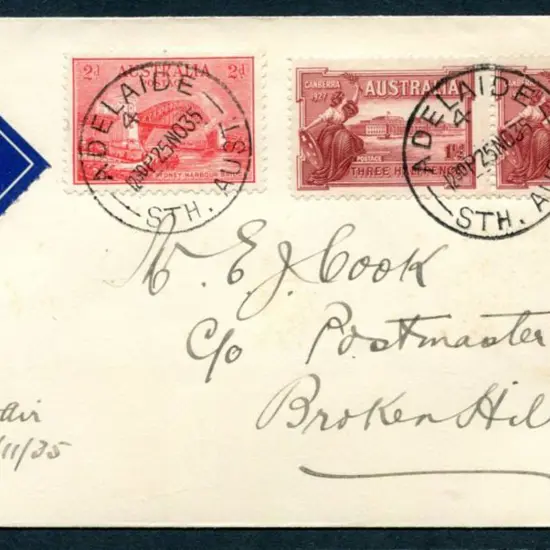 2d AUSTRALIA 2d
SYDNEY HARBOUR
ADELAIDE
4
1230P 25NO35
STH. AUST
CANBERRA AUSTRALIA
1927
POSTAGE
THREE HALFPENCE
ADELAIDE
4
1230P 25NO35
STH. AU
Mr E J Cook
C/o Postmaster
Broken Hil
Air
/11/35